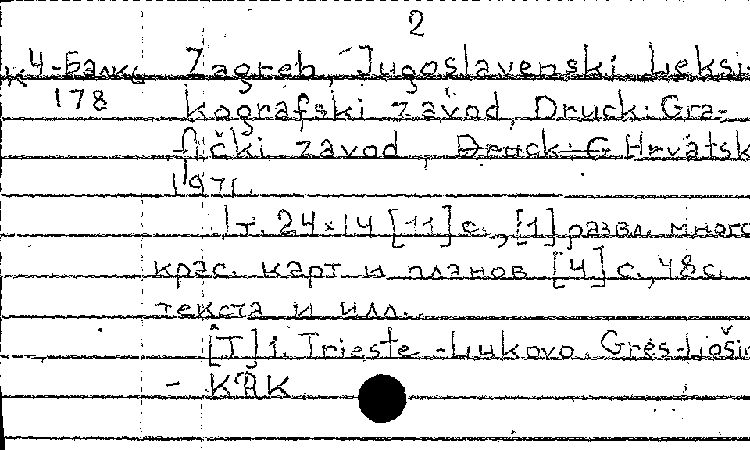 2
К4-Балк Zagreb, Jugoslavenski Leksi-
178 kografski zavod, Druck: Gra-
fički zavod, Druck: G Hrvatsk
1971.
1 т. 24×14 [11] с., [1] разв. много
крас. карт и планов [4] с., 48 с.
текста и илл.
[T] 1. Trieste - Lukovo. Gres-Lošin
- KAK